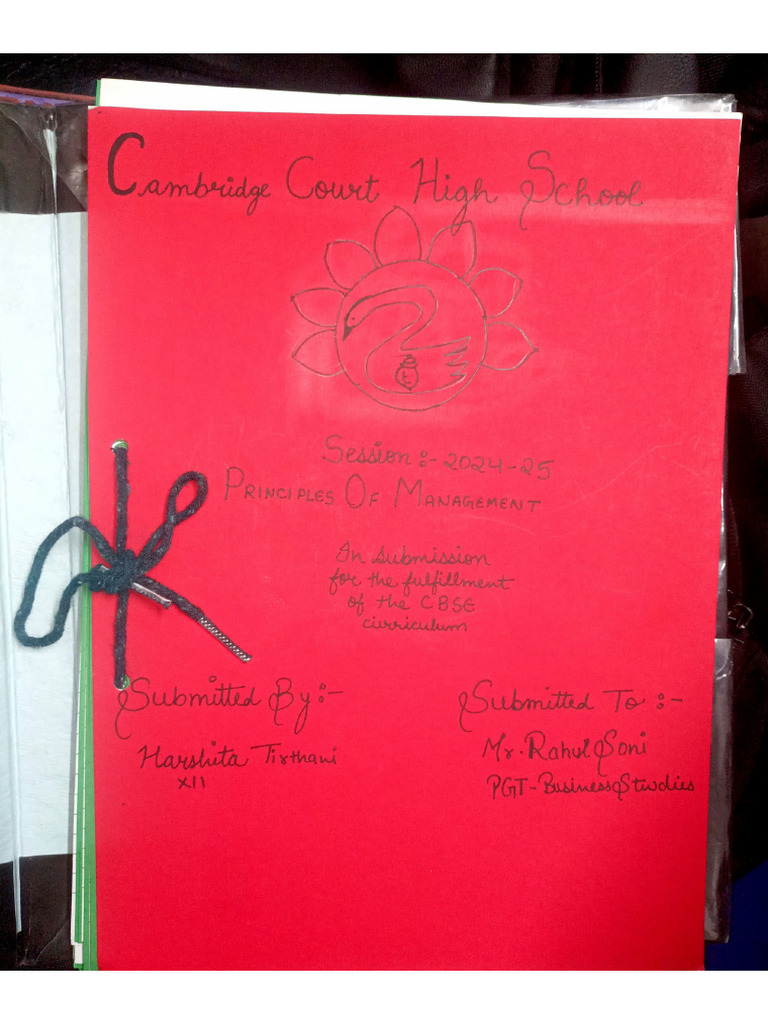 Cambridge Court High School
Session :- 2024-25
PRINCIPLES OF MANAGEMENT
In submission
for the fulfillment
of the CBSE
curriculum
Submitted By :-
Submitted To :-
Harshita Tirthani
XII
Mr. Rahul Soni
PGT - Business Studies